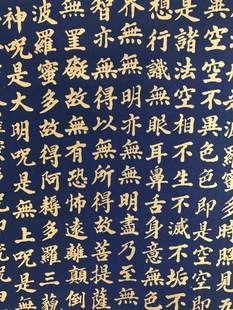 異空空不異色色即是空
是諸法空相不生不滅不垢不
想行識無眼耳鼻舌身意無
界乃至無無明亦無無明盡乃至無
智亦無得以無所得故菩提薩
無罣礙故無有恐怖遠離顛倒
波羅蜜多故得阿耨多羅三藐
神咒是大明咒是無上咒是